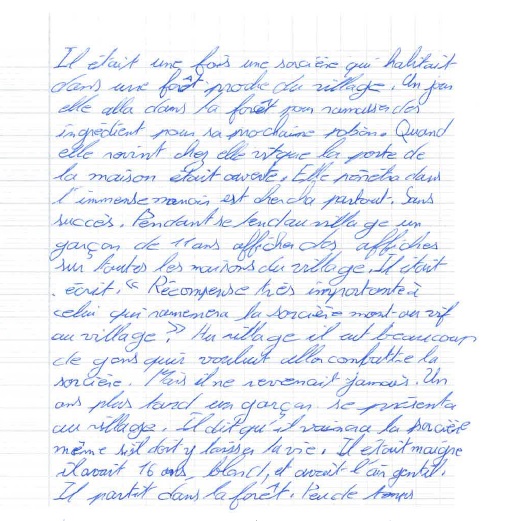 Il était une fois une sorcière qui habitait
dans une forêt proche du village. Un jour
elle alla dans la forêt pour ramasser des
ingrédient pour sa prochaine potion. Quand
elle revint chez elle vit que la porte de
la maison était ouverte. Elle pénétra dans
l'immense manoir est chercha partout. Sans
succès. Pendant se tend au village un
garçon de 11 ans afficher des affiches
sur toutes les maisons du village. Il était
écrit. « Récompense très importante à
celui qui ramenera la sorcière mort ou vif
au village. » Au village il eut beaucoup
de gens qui voulut aller combattre la
sorcière. Mais il ne revenait jamais. Un
ans plus tard un garçon se présenta
au village. Il dit qu'il vaincra la sorcière
même s'il doit y laisser la vie. Il etait maigre
il avait 16 ans, blond, et avait l'air gentil.
Il partit dans la forêt. Peu de temps